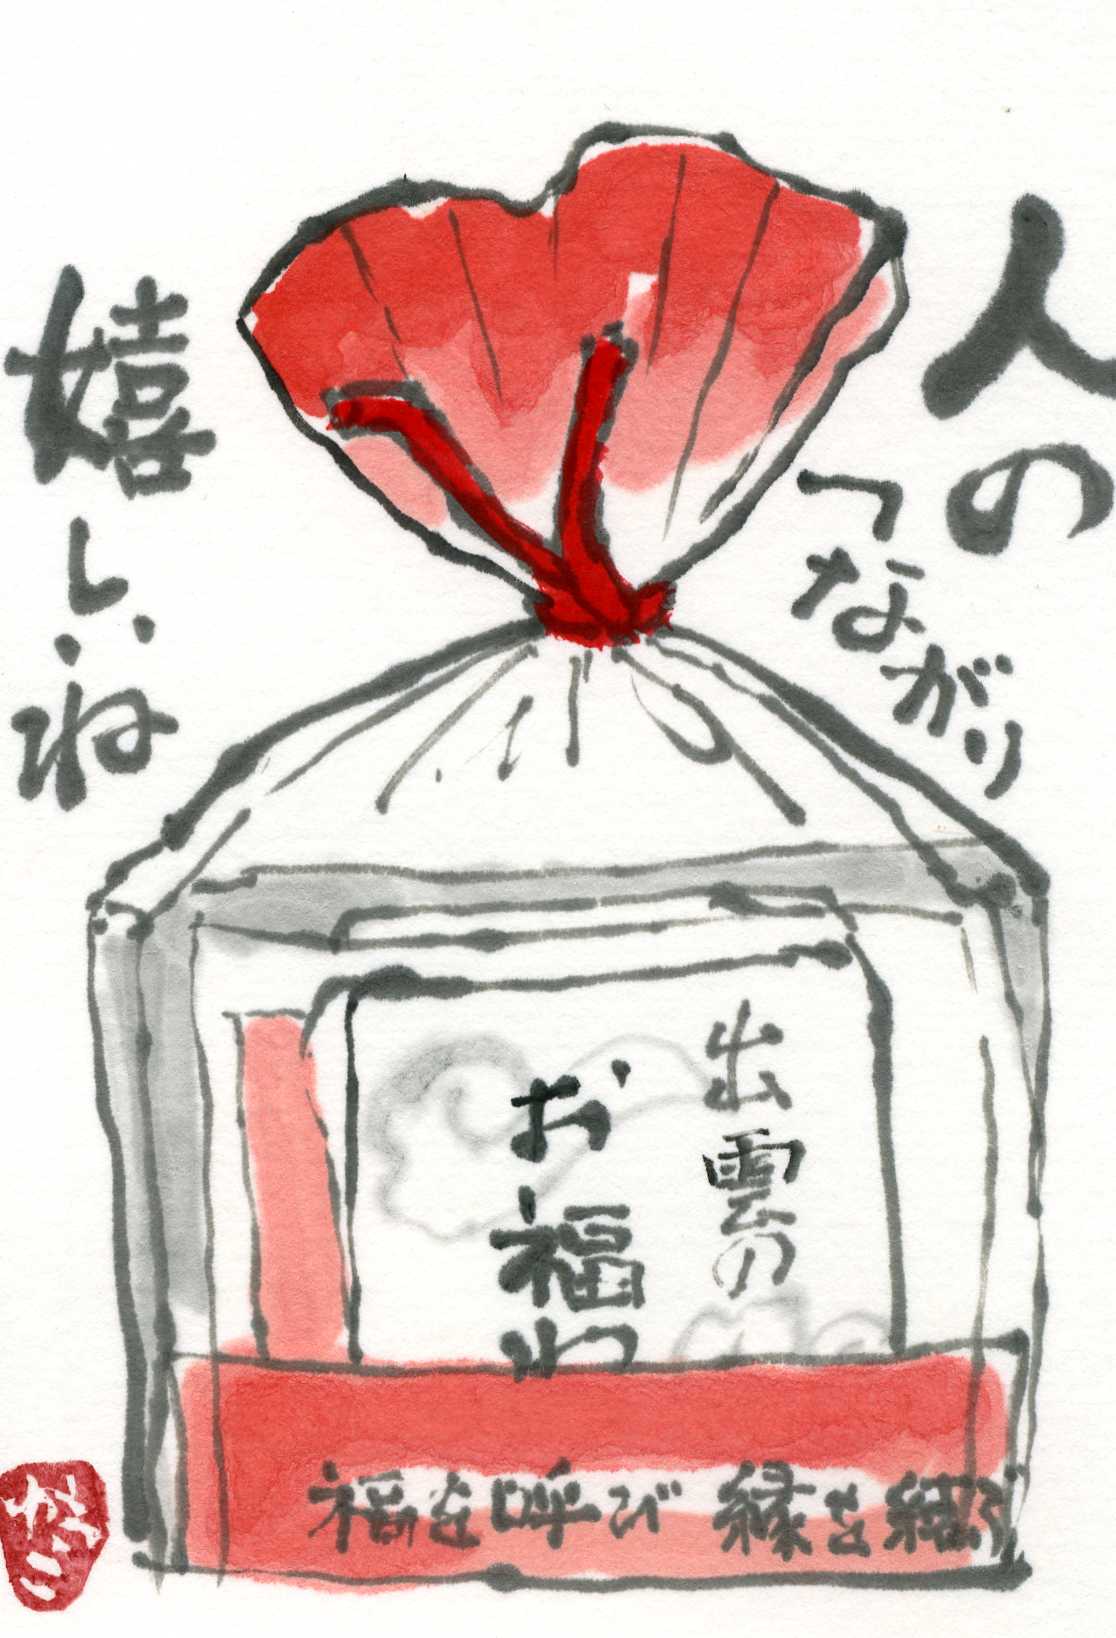 人の
つながり
嬉しいね
出雲の
お福わ
福を呼び 縁を結ぶ